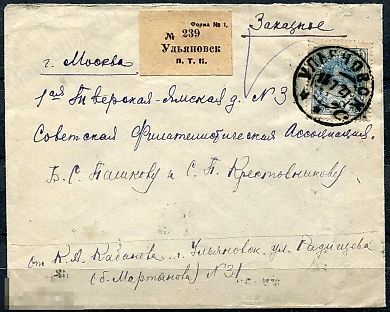 Форма № 1.
№ 239
Ульяновск
П. Т. К.
Заказное
УЛЬЯНОВСК
г. Москва
1ая Тверская-Ямская д. № 3
Советская Филателистическая Ассоциация.
Б. С. Пашкову и С. П. Крестовникову
от К. А. Кабанова, г. Ульяновск, ул. Радищева
(б. Мартынова) № 31